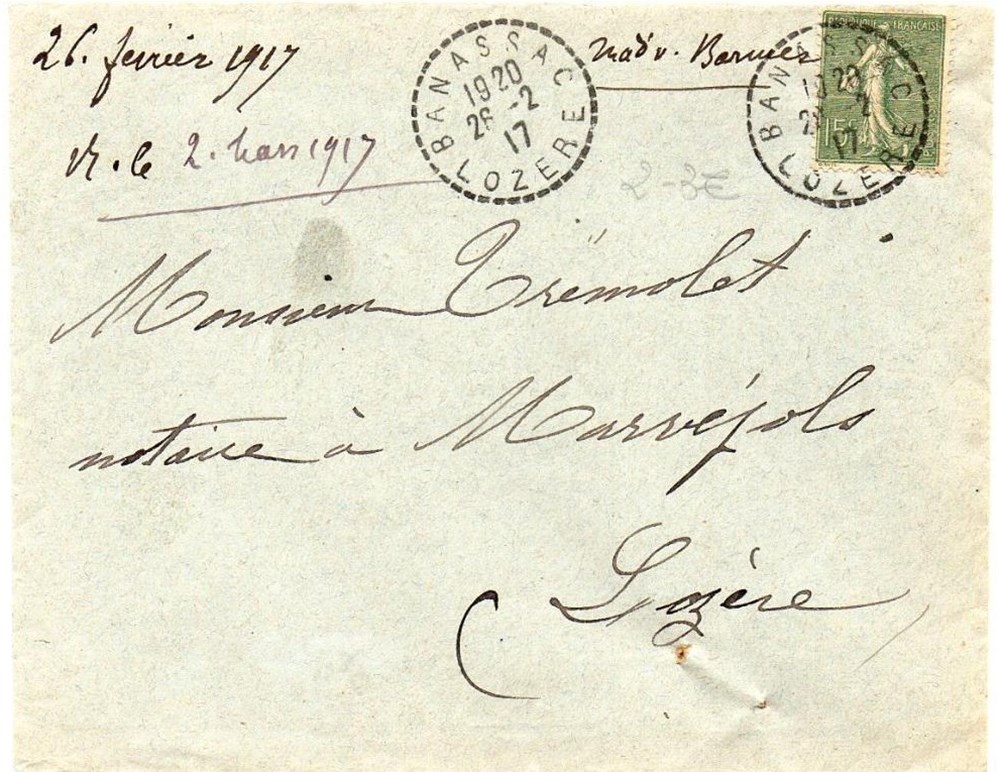 26. fevrier 1917
R. le 2. Mars 1917
BANASSAC
19 20
26 -2
17
LOZERE
BANASSAC
19 20
17
LOZERE
REPUBLIQUE FRANÇAISE
15c
2-3€
Monsieur Trémolet
notaire à Marvéjols
(Lozère)